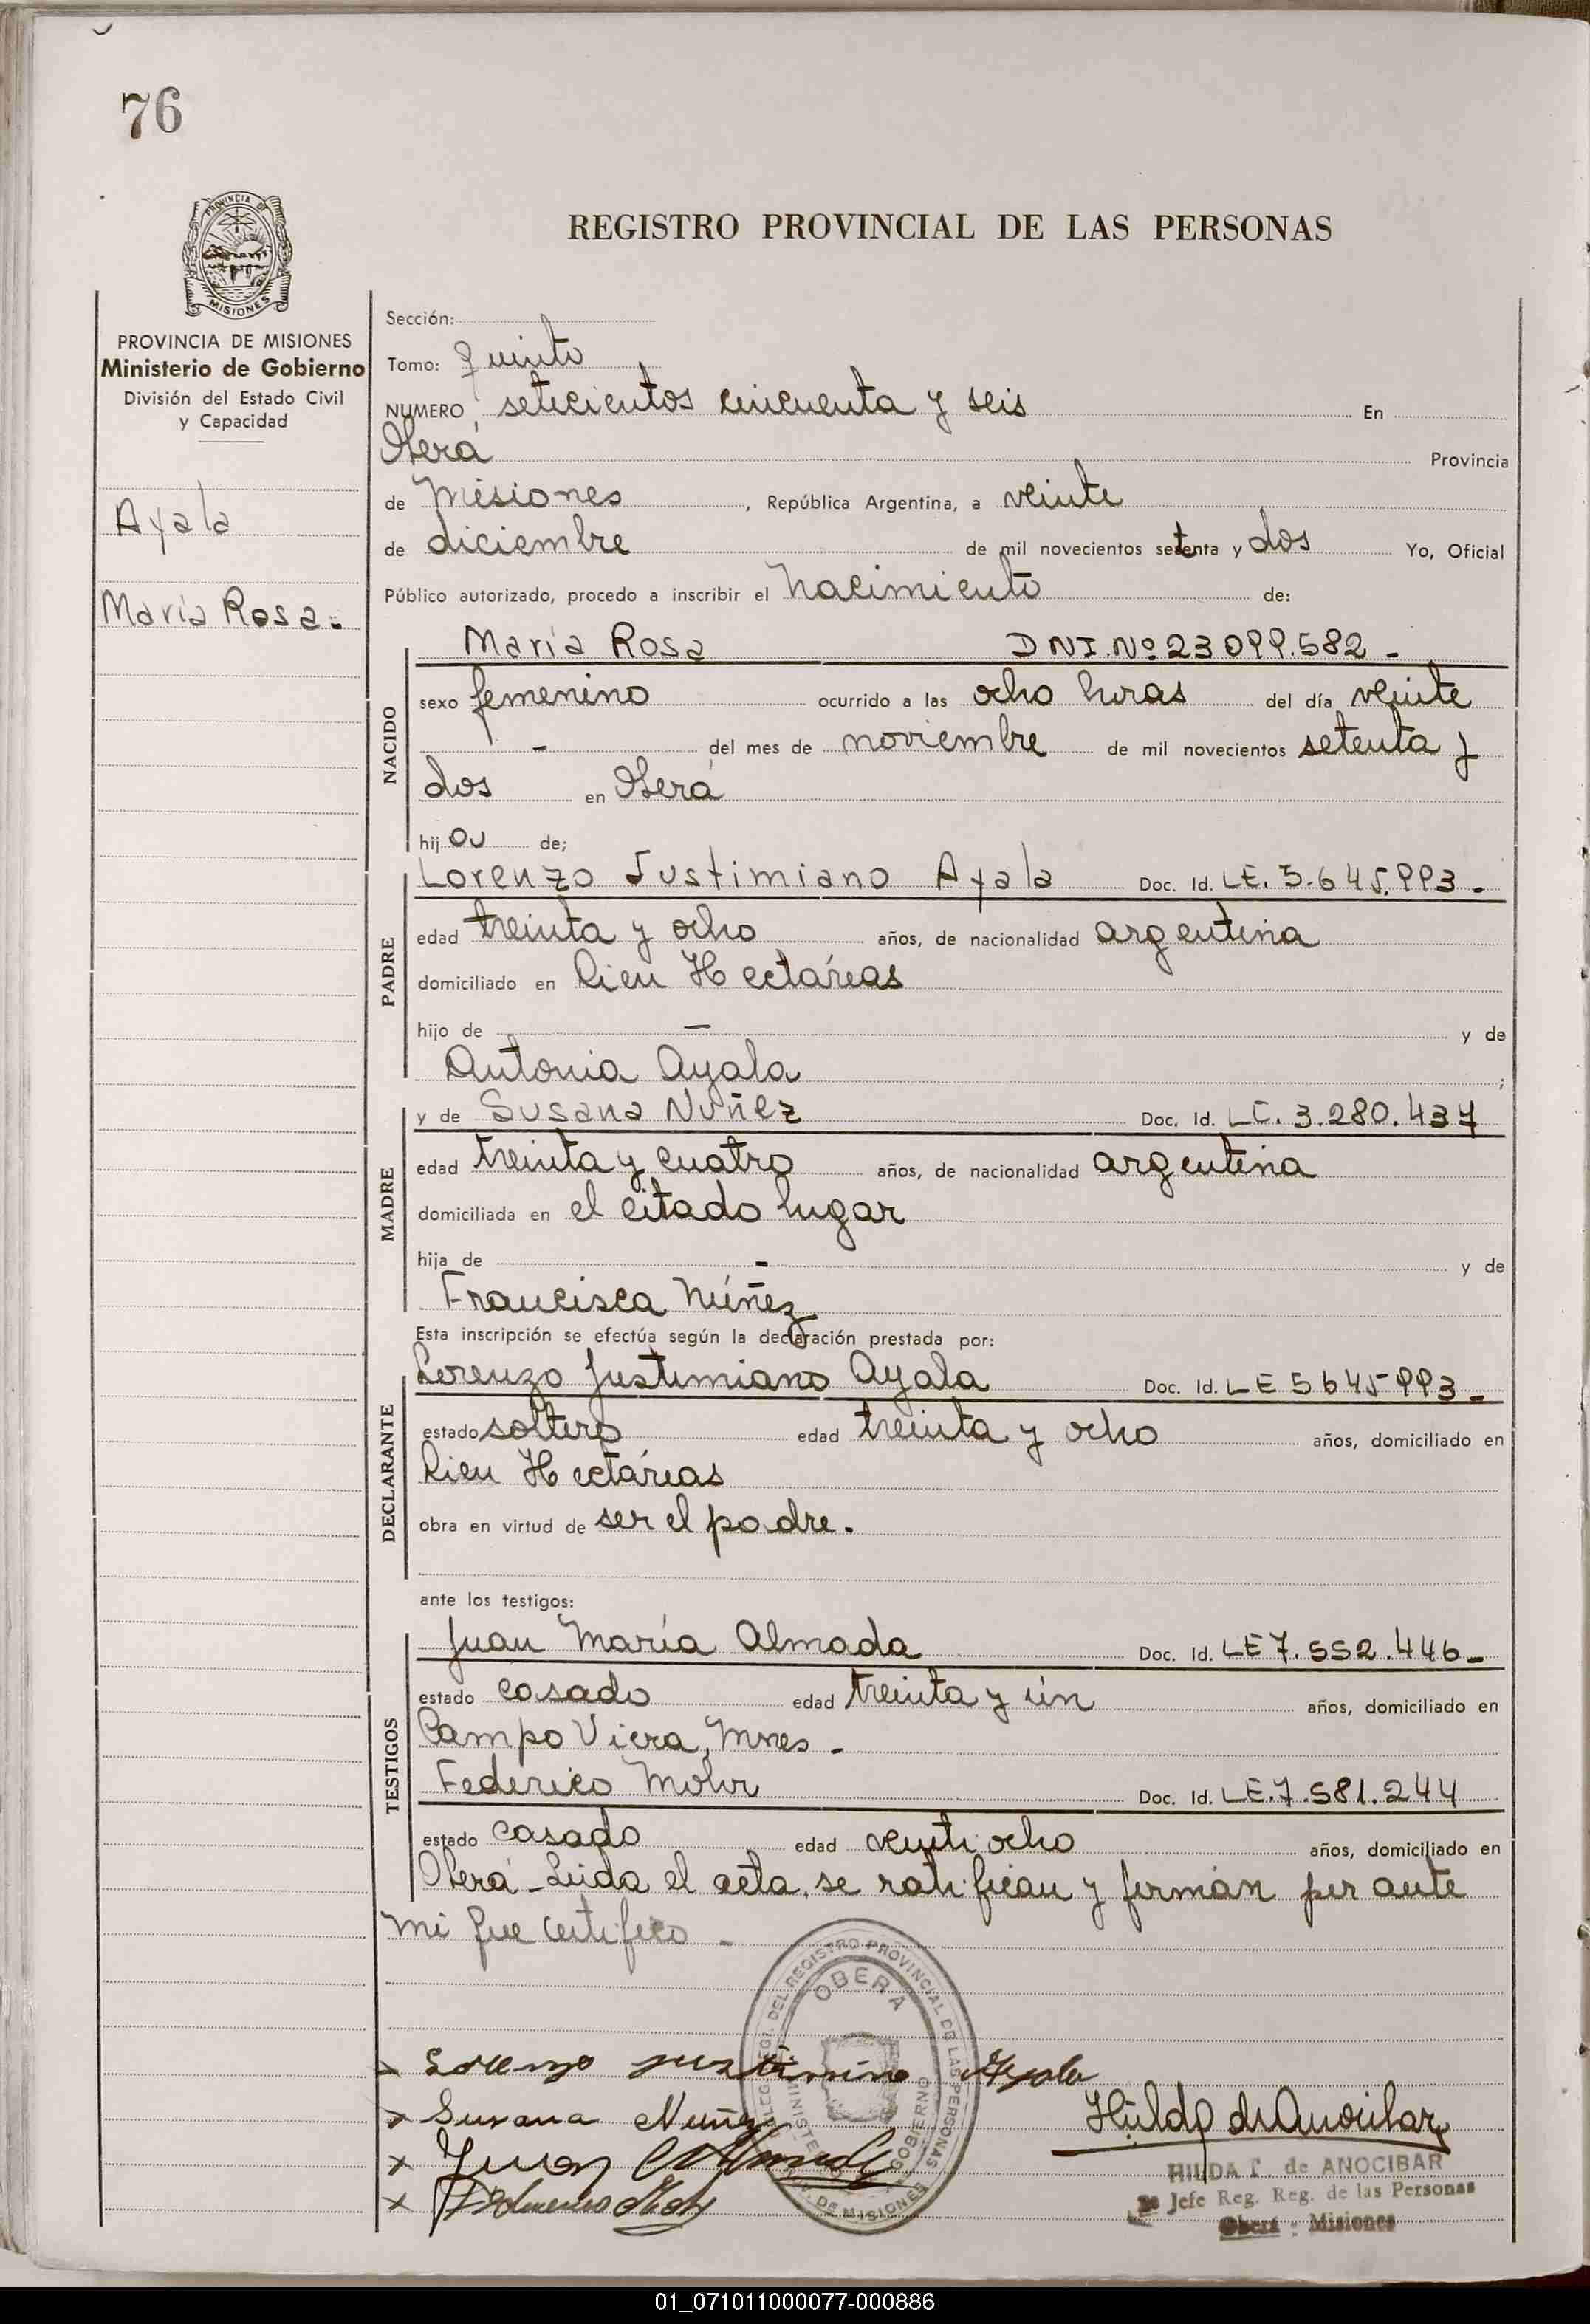 76
PROVINCIA DE
MISIONES
REGISTRO PROVINCIAL DE LAS PERSONAS
PROVINCIA DE MISIONES
Ministerio de Gobierno
División del Estado Civil
y Capacidad
Ayala
María Rosa.
Sección:
Tomo: quinto
NUMERO setecientos cincuenta y seis En
Oberá Provincia
de Misiones, República Argentina, a veinte
de diciembre de mil novecientos setenta y dos Yo, Oficial
Público autorizado, procedo a inscribir el Nacimiento de:
NACIDO
María Rosa DNI.Nº23099.582 -
sexo femenino ocurrido a las ocho horas del día veinte
- del mes de noviembre de mil novecientos setenta y
dos en Oberá
hija de;
PADRE
Lorenzo Justimiano Ayala Doc. Id. LE. 5.645.993.-
edad treinta y ocho años, de nacionalidad argentina
domiciliado en Cien Hectáreas
hijo de - y de
Antonia Ayala;
MADRE
y de Susana Nuñez Doc. Id. LC. 3.280.437
edad treinta y cuatro años, de nacionalidad argentina
domiciliada en el citado lugar
hija de - y de
Francisca Núñez
Esta inscripción se efectúa según la declaración prestada por:
DECLARANTE
Lorenzo Justimiano Ayala Doc. Id. LE 5645993-
estado soltero edad treinta y ocho años, domiciliado en
Cien Hectáreas
obra en virtud de ser el padre.
ante los testigos:
TESTIGOS
Juan María Almada Doc. Id. LE 7.552.446-
estado casado edad treinta y ún años, domiciliado en
Campo Viera, Mnes -
Federico Mohr Doc. Id. LE.7.581.244
estado casado edad veintiocho años, domiciliado en
Oberá - Leida el acta, se ratifican y firman por ante
mi que certifico -
DEL REGISTRO PROVINCIAL DE LAS PERSONAS
OBERA
GOBIERNO
DE MISIONES
Lorenzo justimino Ayala
Susana Nuñez
Juan Almada
Hilda de Anocibar
HILDA T. de ANOCIBAR
2a Jefe Reg. Reg. de las Personas
Oberá - Misiones
01_071011000077-000886